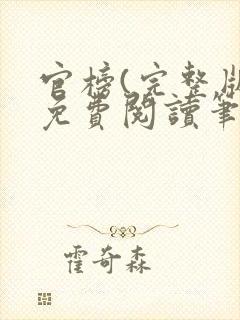 官榜(完整版
免費閱讀筆
霍奇森